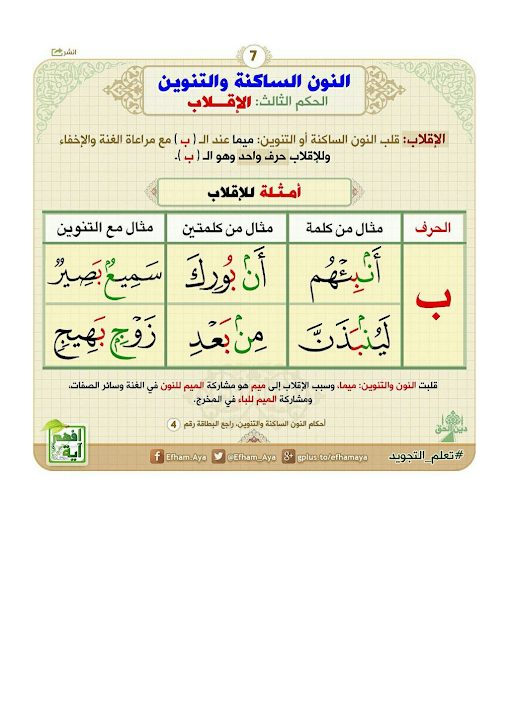 انشر
7
النون الساكنة والتنوين
الحكم الثالث: الإقـلاب
الإقلاب: قلب النون الساكنة أو التنوين: ميما عند الـ ( ب ) مع مراعاة الغنة والإخفاء
وللإقلاب حرف واحد وهو الـ ( ب ).
أمـثـلة للإقلاب
الحرف مثال من كلمة مثال من كلمتين مثال مع التنوين
ب
أَنۢبِئۡهُم أَنۢ بُورِكَ سَمِيعُۢ بَصِيرٞ
لَيُنۢبَذَنَّ مِنۢ بَعۡدِ زَوۡجِۭ بَهِيجٖ
قلبت النون والتنوين: ميما، وسبب الإقلاب إلى ميم هو مشاركة الميم للنون في الغنة وسائر الصفات،
ومشاركة الميم للباء في المخرج.
أحكام النون الساكنة والتنوين، راجع البطاقة رقم 4
دين الحق
افهم آية
#تعلم_التجويد gplus.to/efhamaya @Efham_Aya Efham.Aya